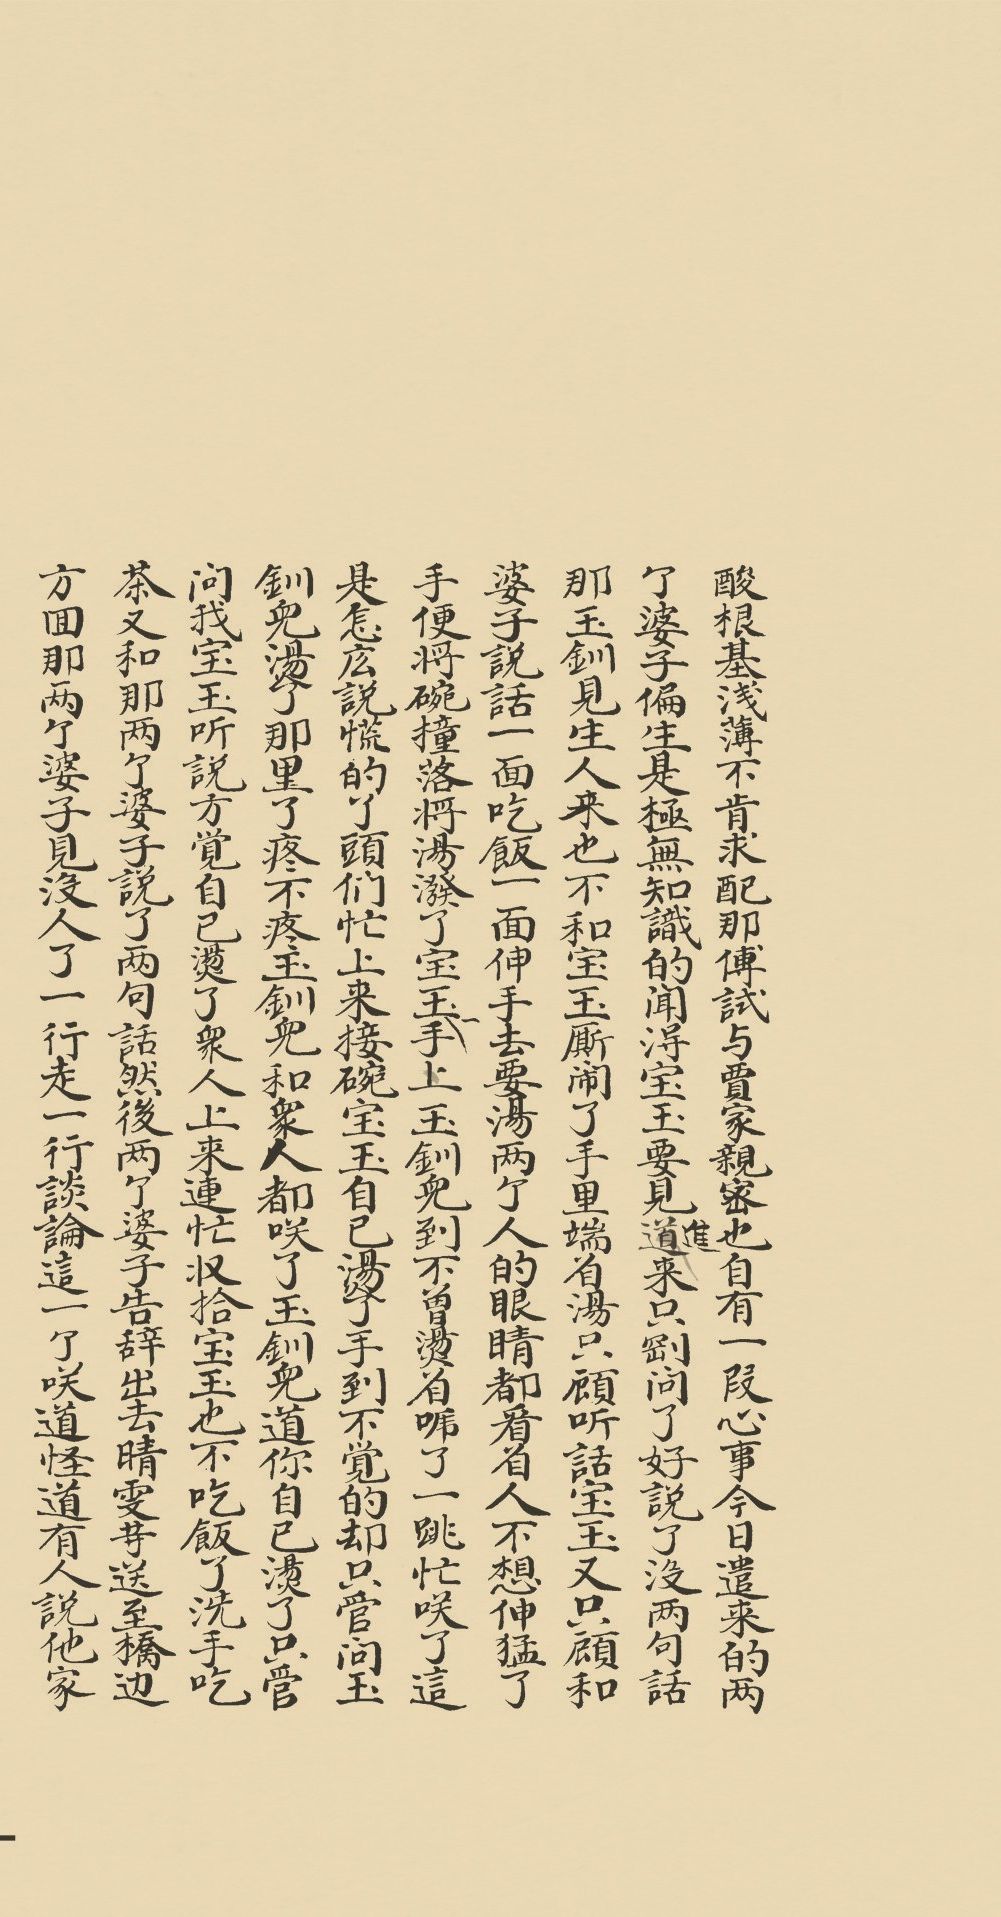 酸根基浅薄不肯求配那傅試与賈家親密也自有一段心事今日遣来的两
个婆子偏生是極無知識的闻得宝玉要見進来只劉问了好説了没两句話
那玉釧見生人来也不和宝玉厮闹了手里端着湯只顧听話宝玉又只顧和
婆子説話一面吃飯一面伸手去要湯两个人的眼睛都看着人不想伸猛了
手便将碗撞落将湯潑了宝玉手上玉釧兒到不曾燙着唬了一跳忙咲了這
是怎庅説慌的丫頭们忙上来接碗宝玉自已燙了手到不覚的却只管问玉
釧兒燙了那里了疼不疼玉釧兒和衆人都咲了玉釧兒道你自已燙了只管
问我宝玉听説方覚自已燙了衆人上来連忙収拾宝玉也不吃飯了洗手吃
茶又和那两个婆子説了两句話然後两个婆子告辞出去晴雯䓁送至橋边
方回那两个婆子見没人了一行走一行談論這一个咲道怪道有人説他家